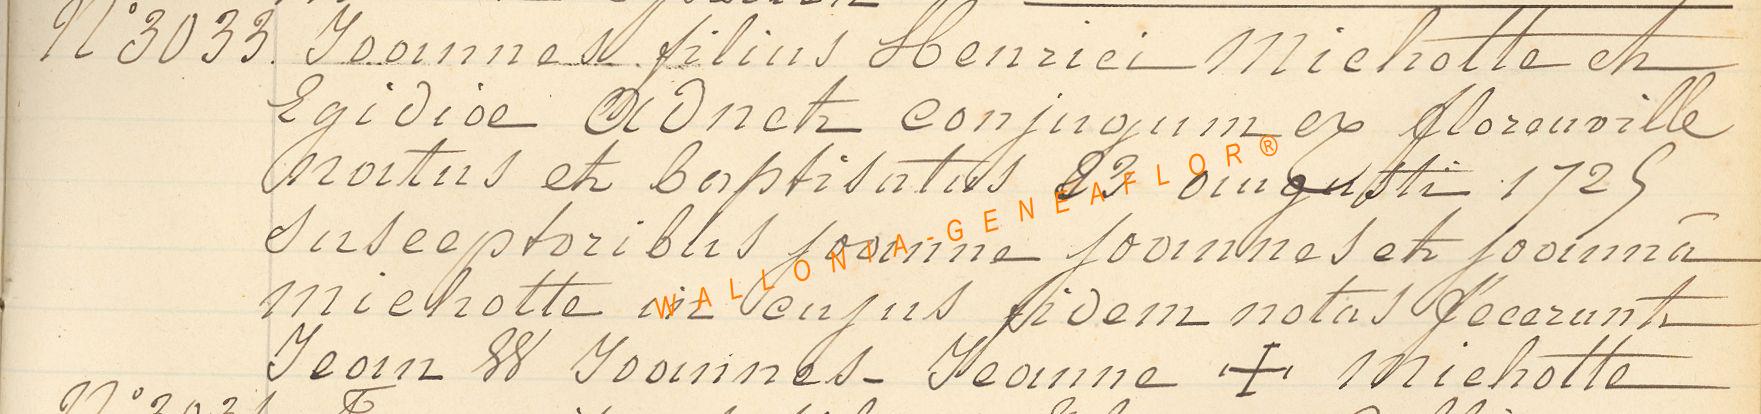 N° 3033. Joannes filius Henrici Michotte et
Egidiæ Adnet conjugum ex florenville
natus et baptisatus 23 augusti 1725
susceptoribus joanne joannes et joannâ
michotte in cujus fidem notas fecerunt
Jean 88 Joannes - Jeanne + Michotte
N° 303
WALLONIA-GENEAFLOR®